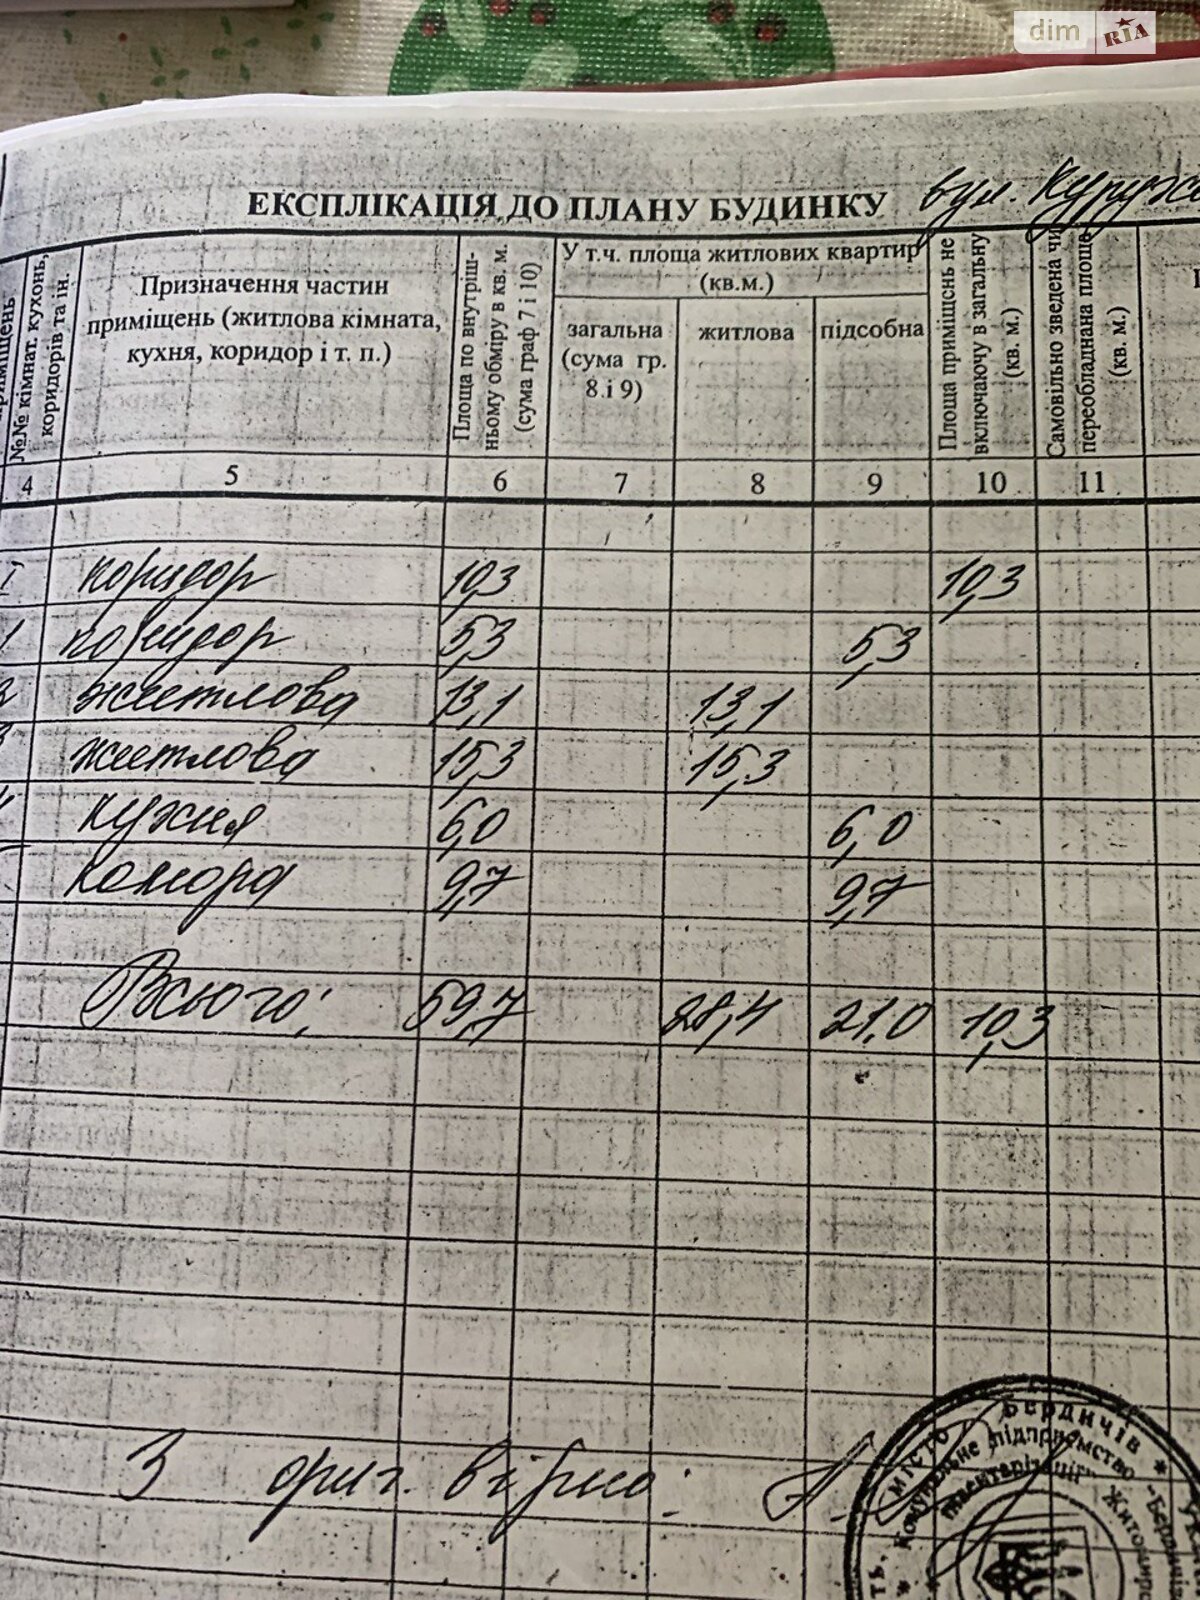 dim RIA
ЕКСПЛІКАЦІЯ ДО ПЛАНУ БУДИНКУ вул.
№№ кімнат, кухонь, коридорів та ін.
Призначення частин приміщень (житлова кімната, кухня, коридор і т. п.)
Площа по внутрішньому обміру в кв. м. (сума граф 7 і 10)
У т.ч. площа житлових квартир (кв.м.)
загальна (сума гр. 8 і 9)
житлова
підсобна
Площа приміщень не включаючу в загальну (кв. м.)
Самовільно зведена чи переобладнана площе (кв. м.)
4 5 6 7 8 9 10 11
І коридор 10,3 10,3
1 коридор 5,3 5,3
2 житлова 13,1 13,1
3 житлова 15,3 15,3
4 кухня 6,0 6,0
комора 9,7 9,7
Всього: 59,7 28,4 21.0 10,3
З ориг. вірно:
місто Бердичів *
* Комунальне підприємство
інвентаризації"